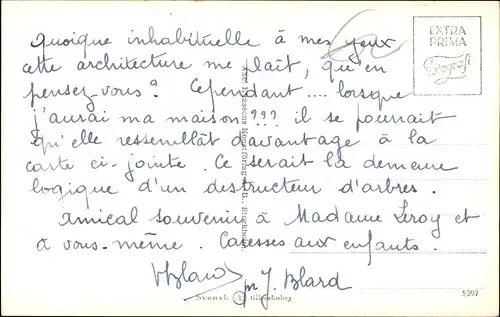 Quoique inhabituelle à mes yeux
cette architecture me plaît, qu'en
pensez-vous? Cependant .... lorsque
j'aurai ma maison??? il se pourrait
qu'elle ressemblât davantage à la
carte ci-jointe. Ce serait la demeure
logique d'un destructeur d'arbres.
Amical souvenir à Madame Leroy et
à vous-même. Caresses aux enfants.
pr J. Blard
EXTRA
PRIMA
Fotografi
Axel Eliassons Konstförlag A.B., Stockholm
Svensk tillverkning
5397